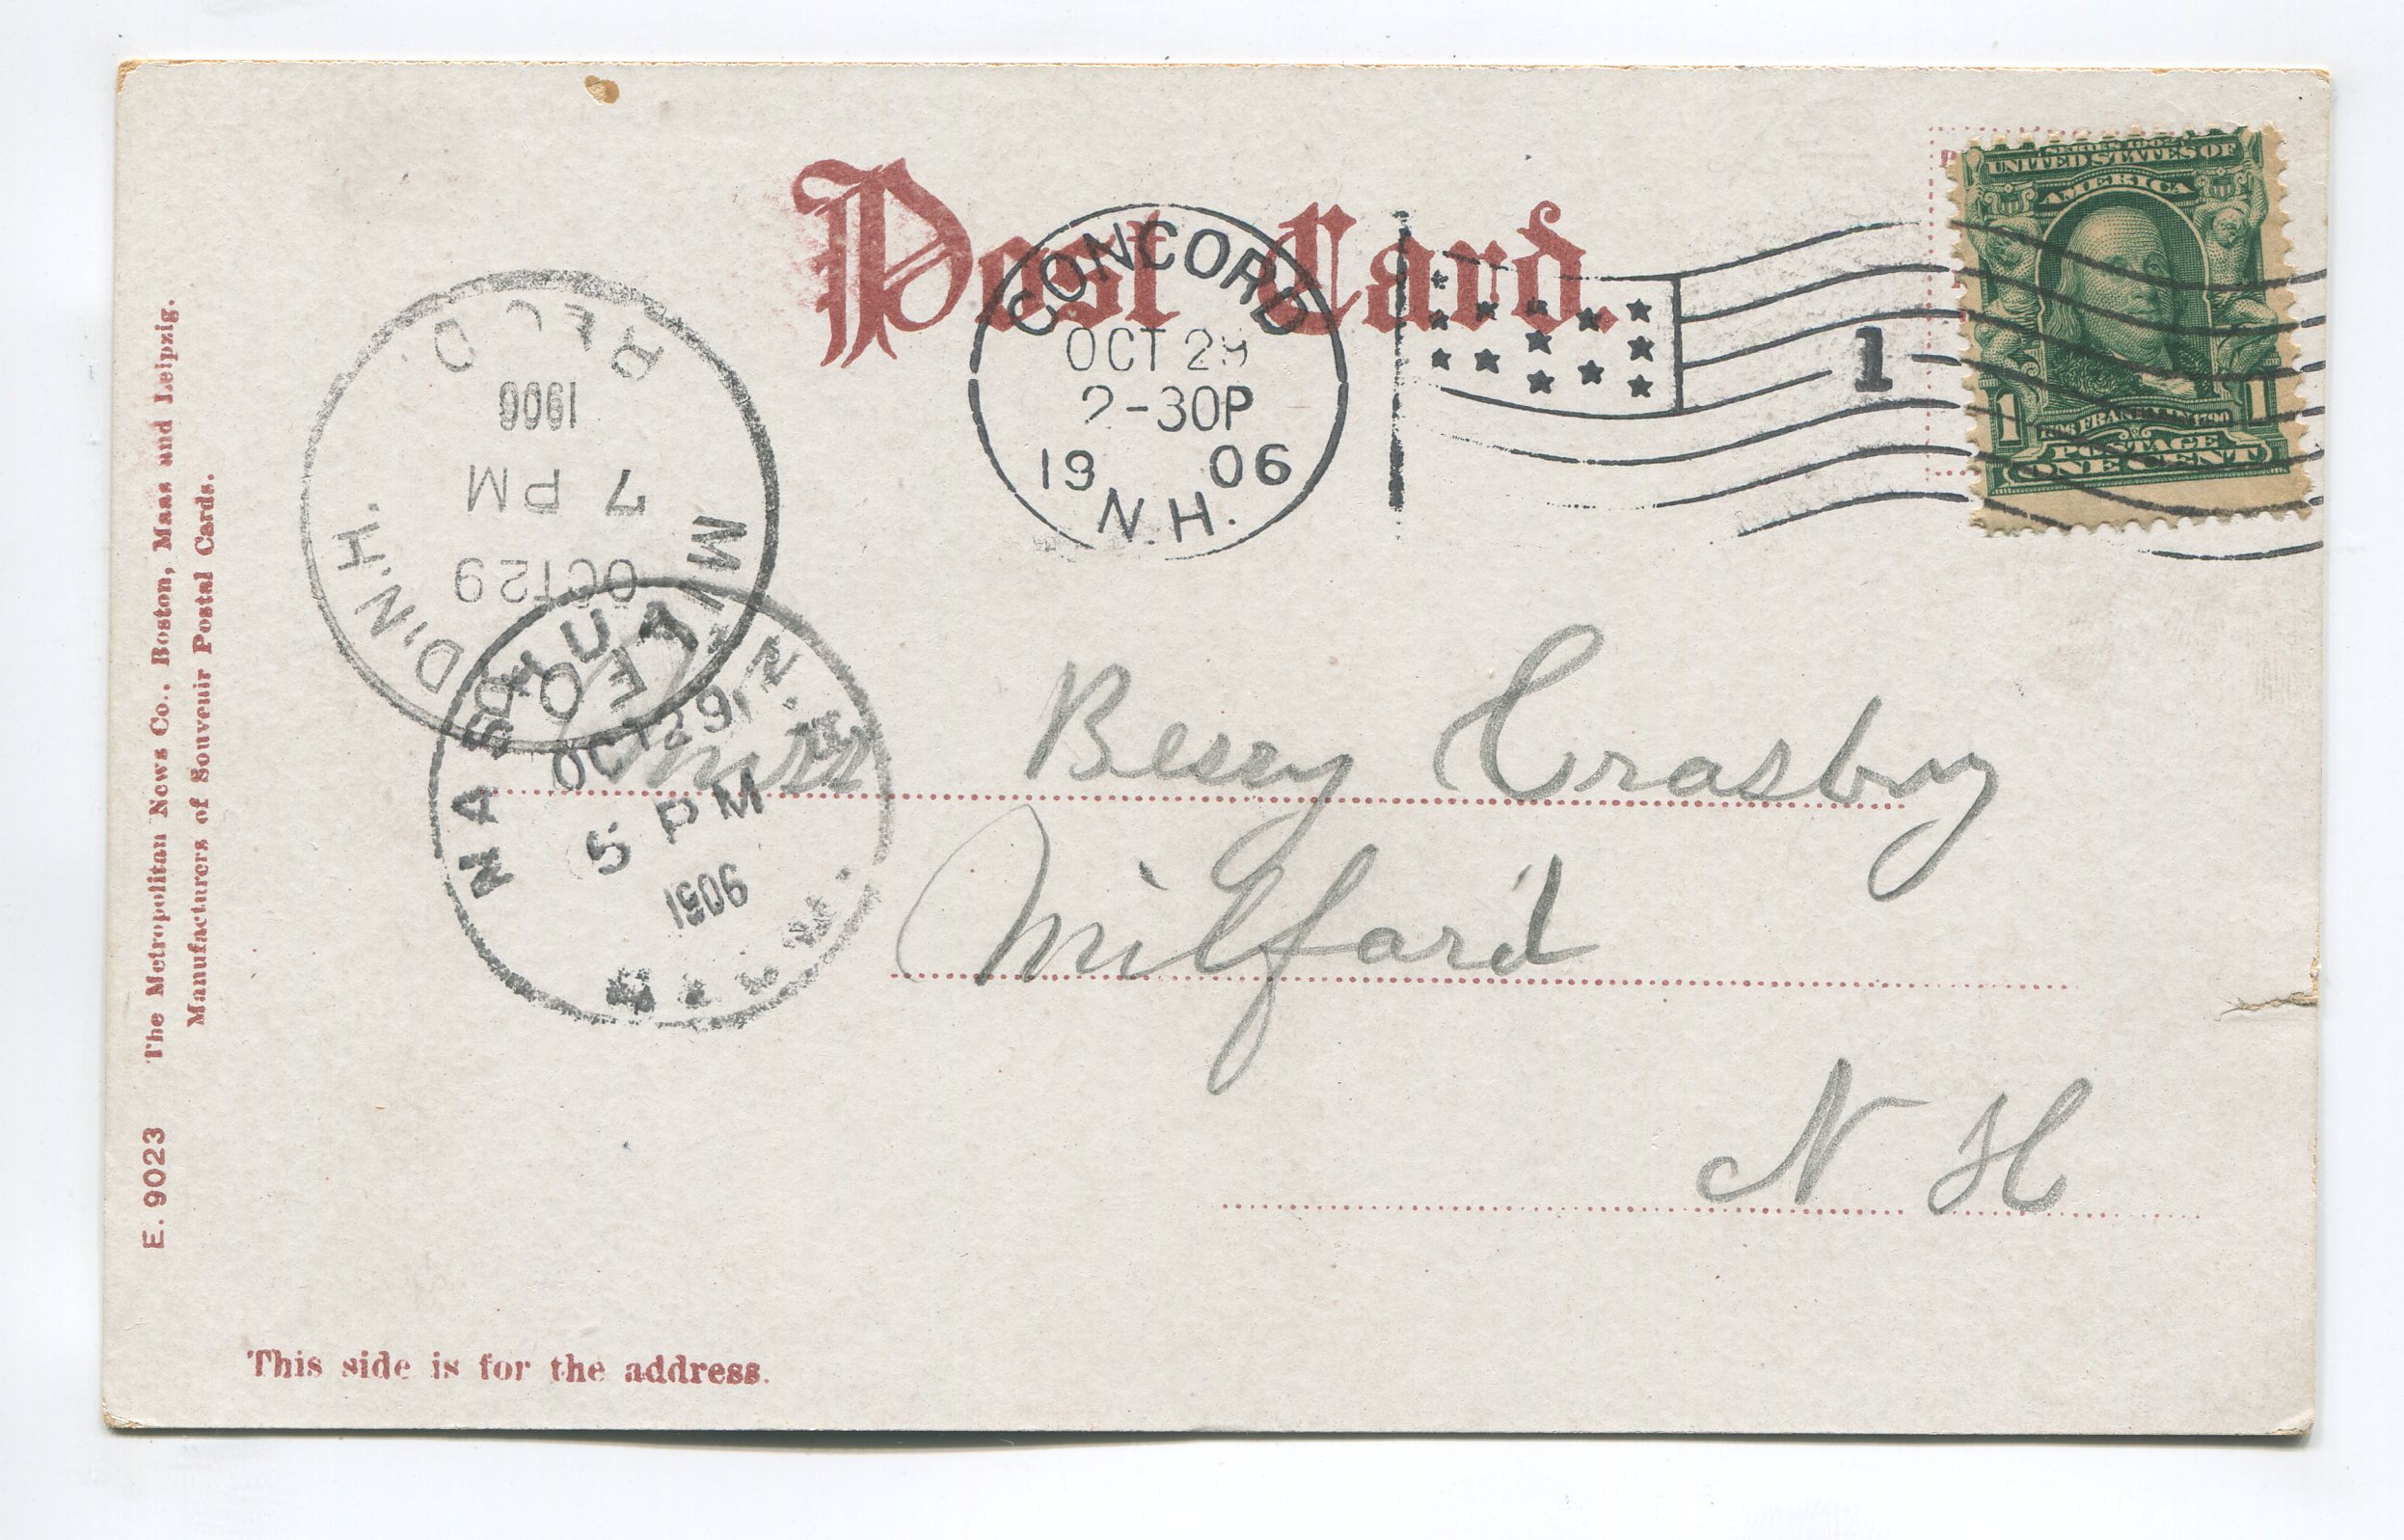 Post Card.
CONCORD
OCT 29
2-30P
19 06
N.H.
1
SERIES 1902
UNITED STATES OF
AMERICA
1 1
1706 FRANKLIN 1790
POSTAGE
ONE CENT
REC'D.
1906
7 PM
OCT 29
MILFORD, N.H.
NASHUA, N.H.
OCT 29
5 PM
1906
Miss Bessy Crasby
Milford
N H
E. 9023 The Metropolitan News Co., Boston, Mass and Leipzig.
Manufacturers of Souvenir Postal Cards.
This side is for the address.